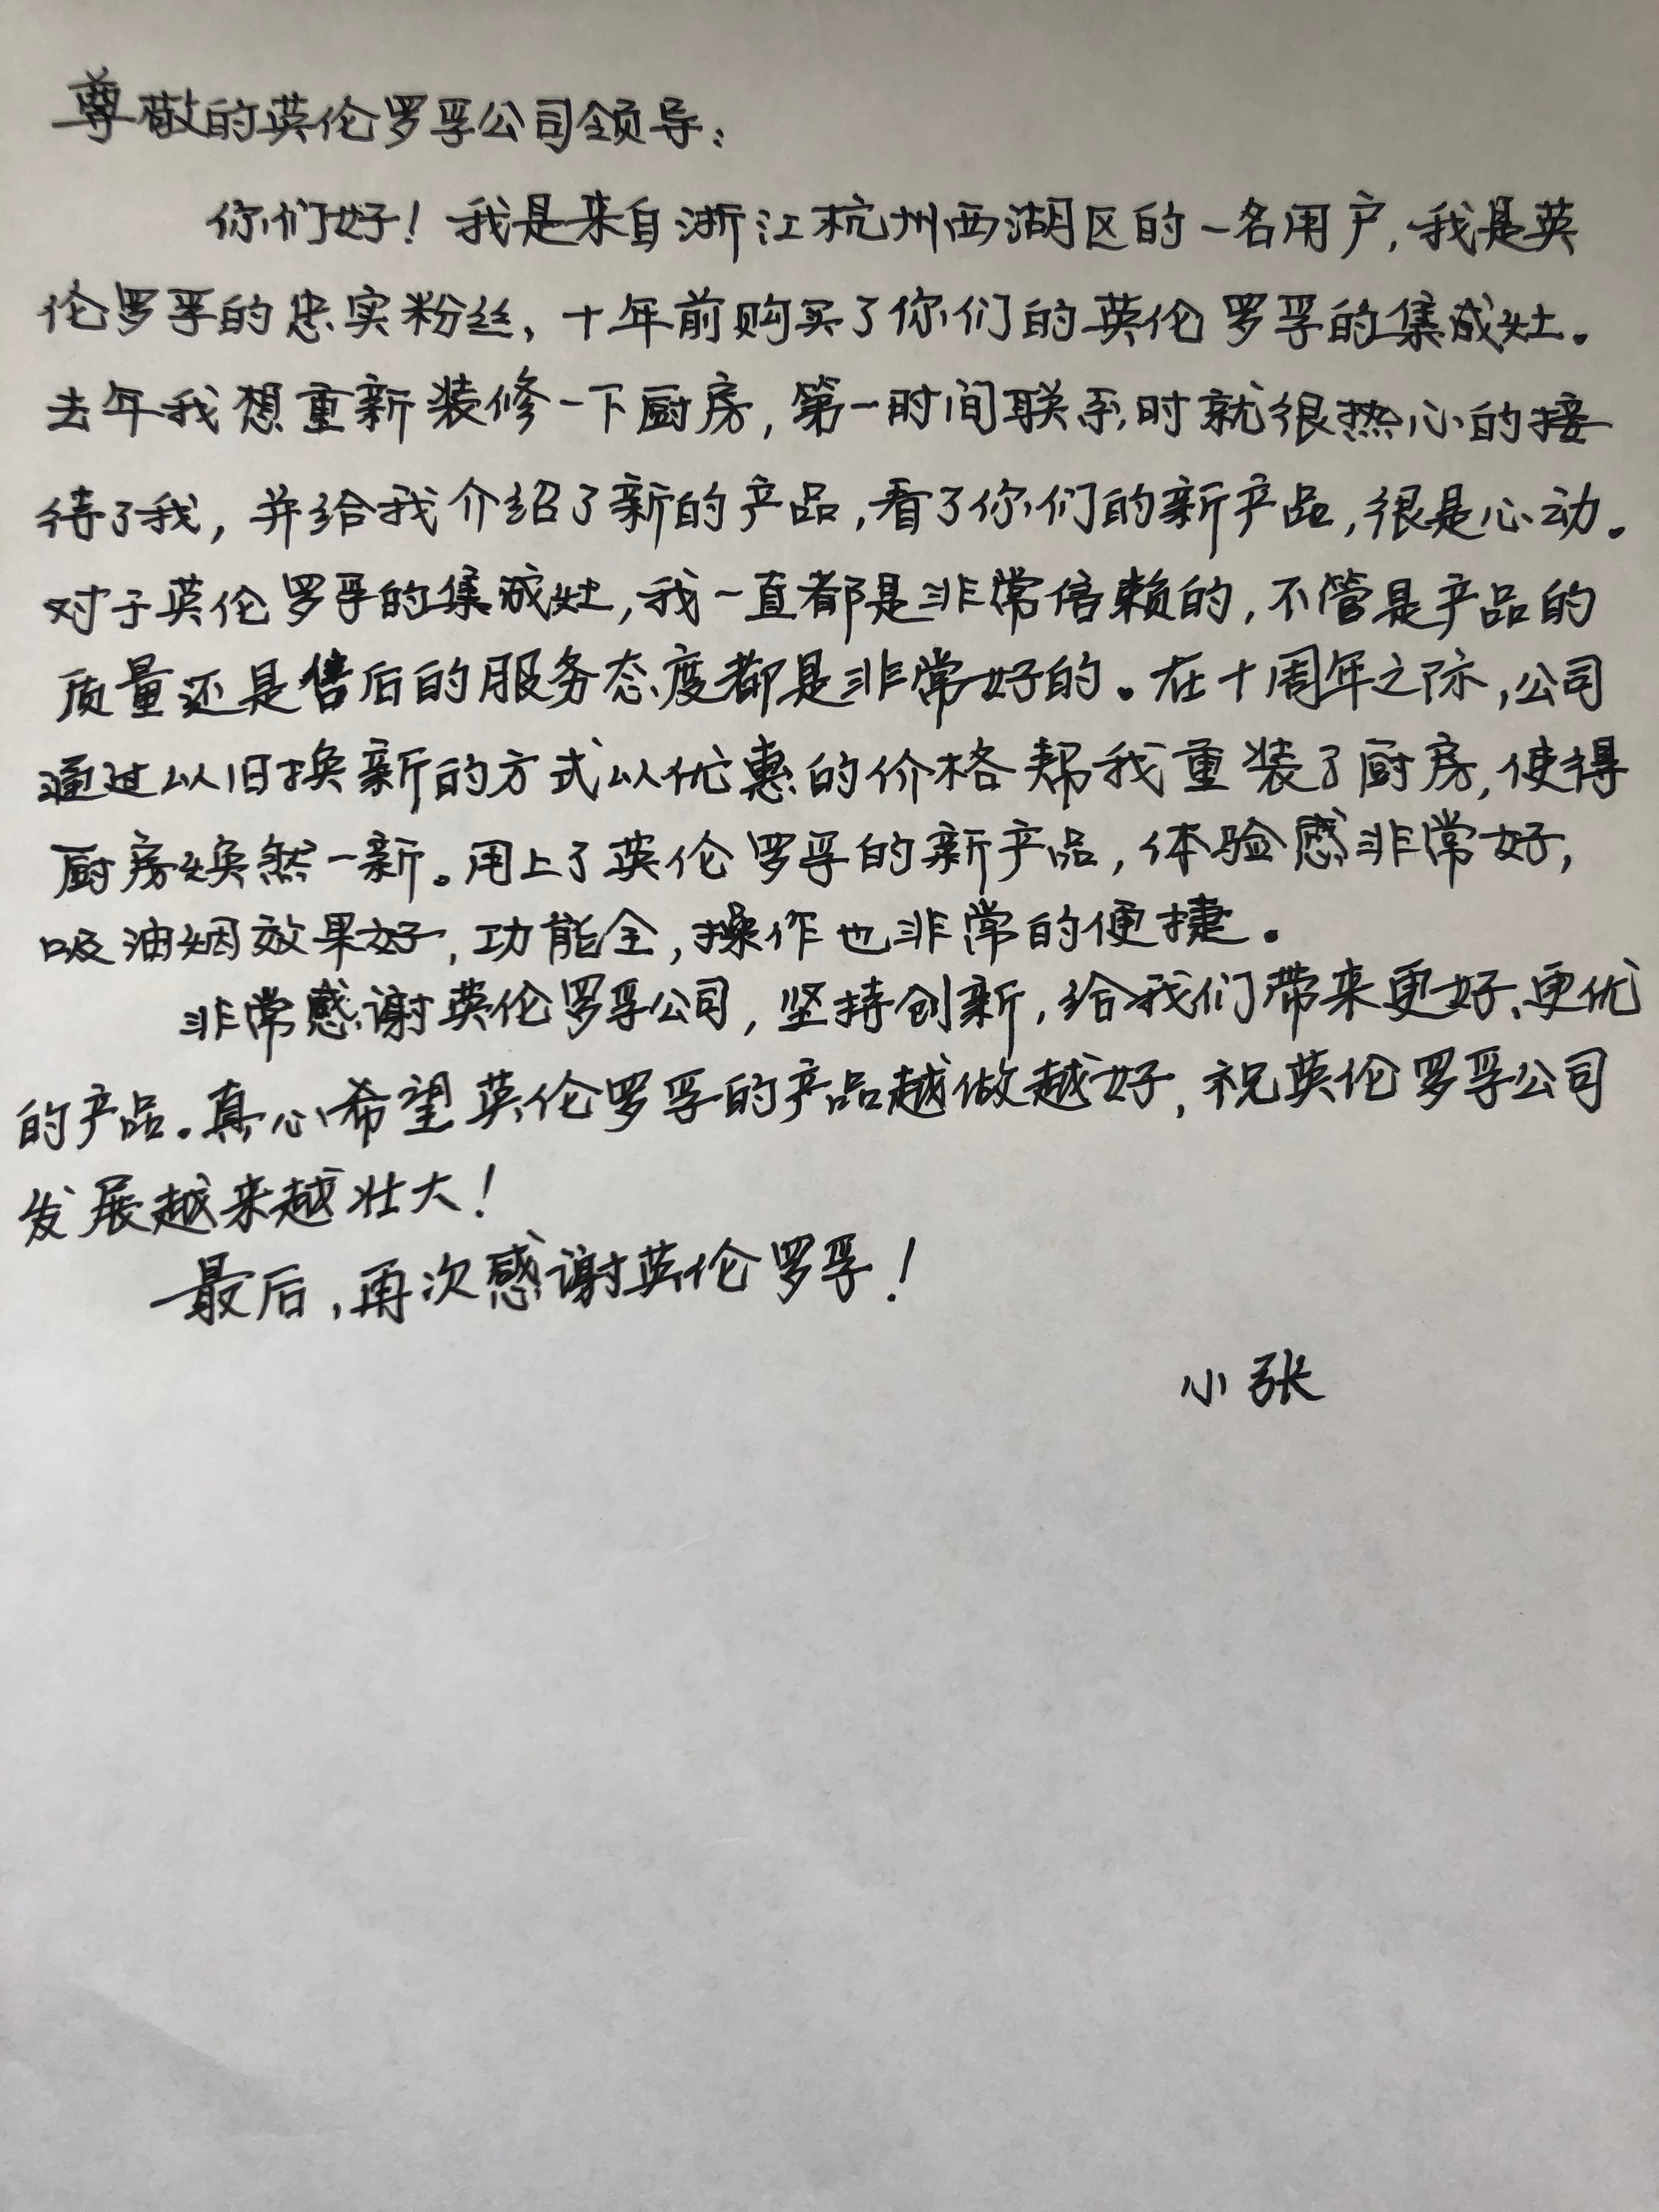 尊敬的英伦罗孚公司领导：
你们好！我是来自浙江杭州西湖区的一名用户，我是英
伦罗孚的忠实粉丝，十年前购买了你们的英伦罗孚的集成灶。
去年我想重新装修一下厨房，第一时间联系时就很热心的接
待了我，并给我介绍了新的产品，看了你们的新产品，很是心动。
对于英伦罗孚的集成灶，我一直都是非常信赖的，不管是产品的
质量还是售后的服务态度都是非常好的。在十周年之际，公司
通过以旧换新的方式以优惠的价格帮我重装了厨房，使得
厨房焕然一新。用上了英伦罗孚的新产品，体验感非常好，
吸油烟效果好，功能全，操作也非常的便捷。
非常感谢英伦罗孚公司，坚持创新，给我们带来更好、更优
的产品。真心希望英伦罗孚的产品越做越好，祝英伦罗孚公司
发展越来越壮大！
最后，再次感谢英伦罗孚！
小张